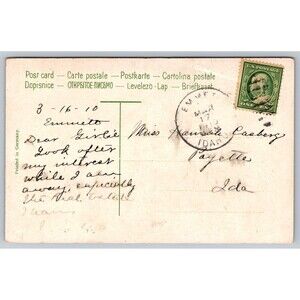 Post card — Carte postale — Postkarte — Cartolina postale
Dopisnice — ОТКРЫТОЕ ПИСЬМО — Levelező-Lap — Briefkaart
U.S. POSTAGE
EMMETT
MAR
17
1910
IDAHO
3-16-10
Emmett
Dear Girlie
Look after
my interest
while I am
away, especially
the
Miss Hannah
Payette
Ida
Printed in Germany